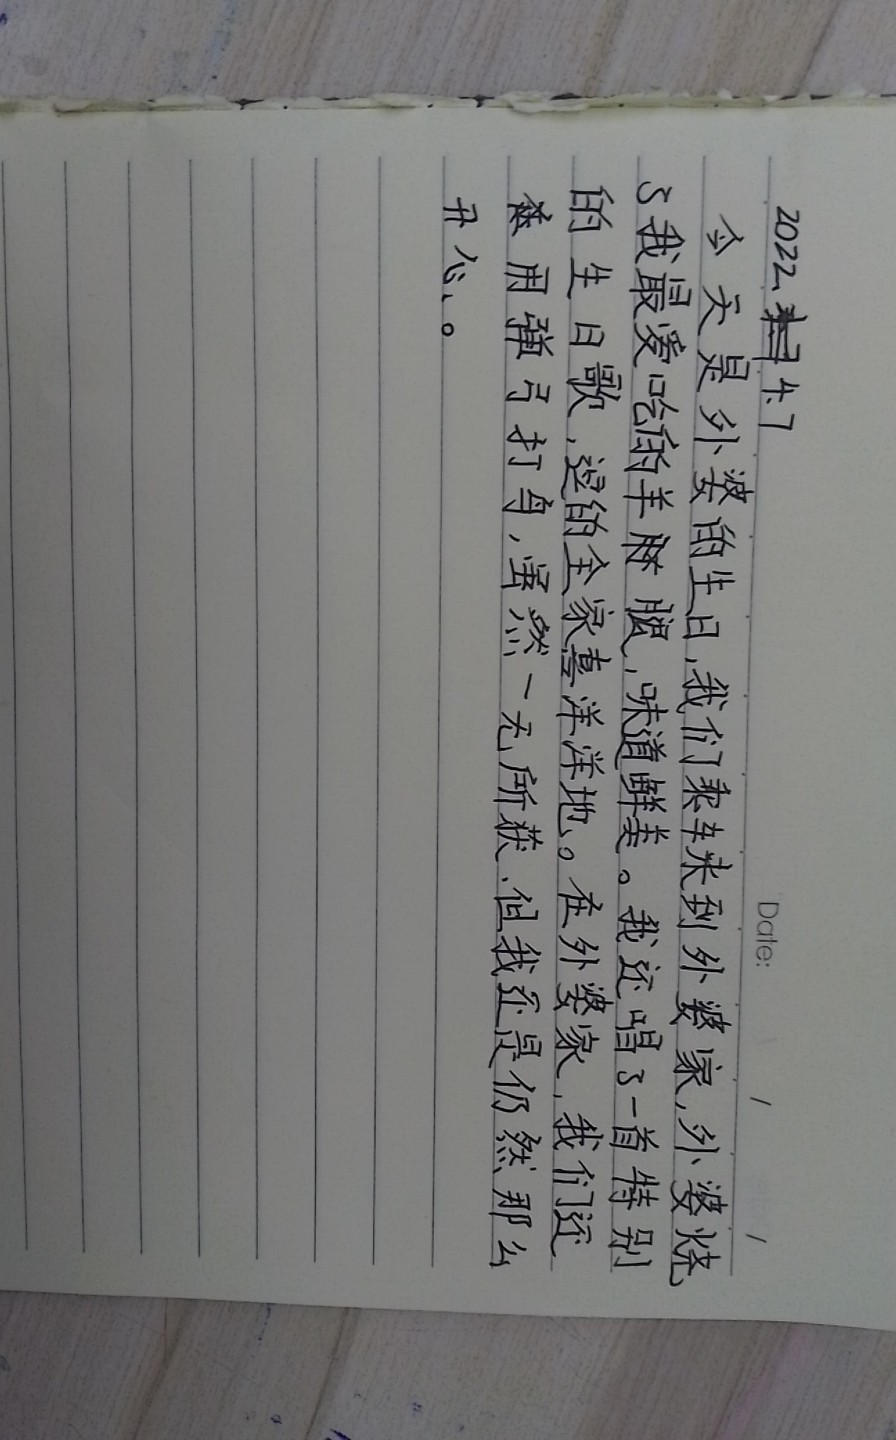 2022 4.7
Date: / /
今天是外婆的生日,我们乘车来到外婆家,外婆烧
了我最爱吃的羊胯腿,味道鲜美。我还唱了一首特别
的生日歌,逗的全家喜洋洋地。在外婆家,我们还
用弹弓打鸟,虽然一无所获.但我还是仍然那么
开心。